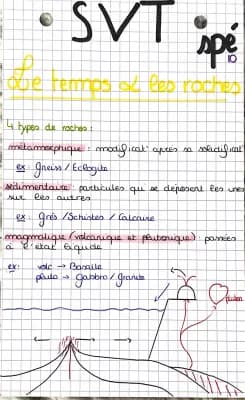 • SVT • spé
10
Le temps & les roches
4 types de roches :
métamorphique : modificat° après sa solidificat°
ex : Gneiss / Eclogite
sédimentaire : particules qui se déposent les unes
sur les autres
ex : Grès / Schistes / Calcaire
magmatique (volcanique et plutonique) : passées
à l'état liquide
ex : volc → Basalte
pluto → Gabbro / Granite